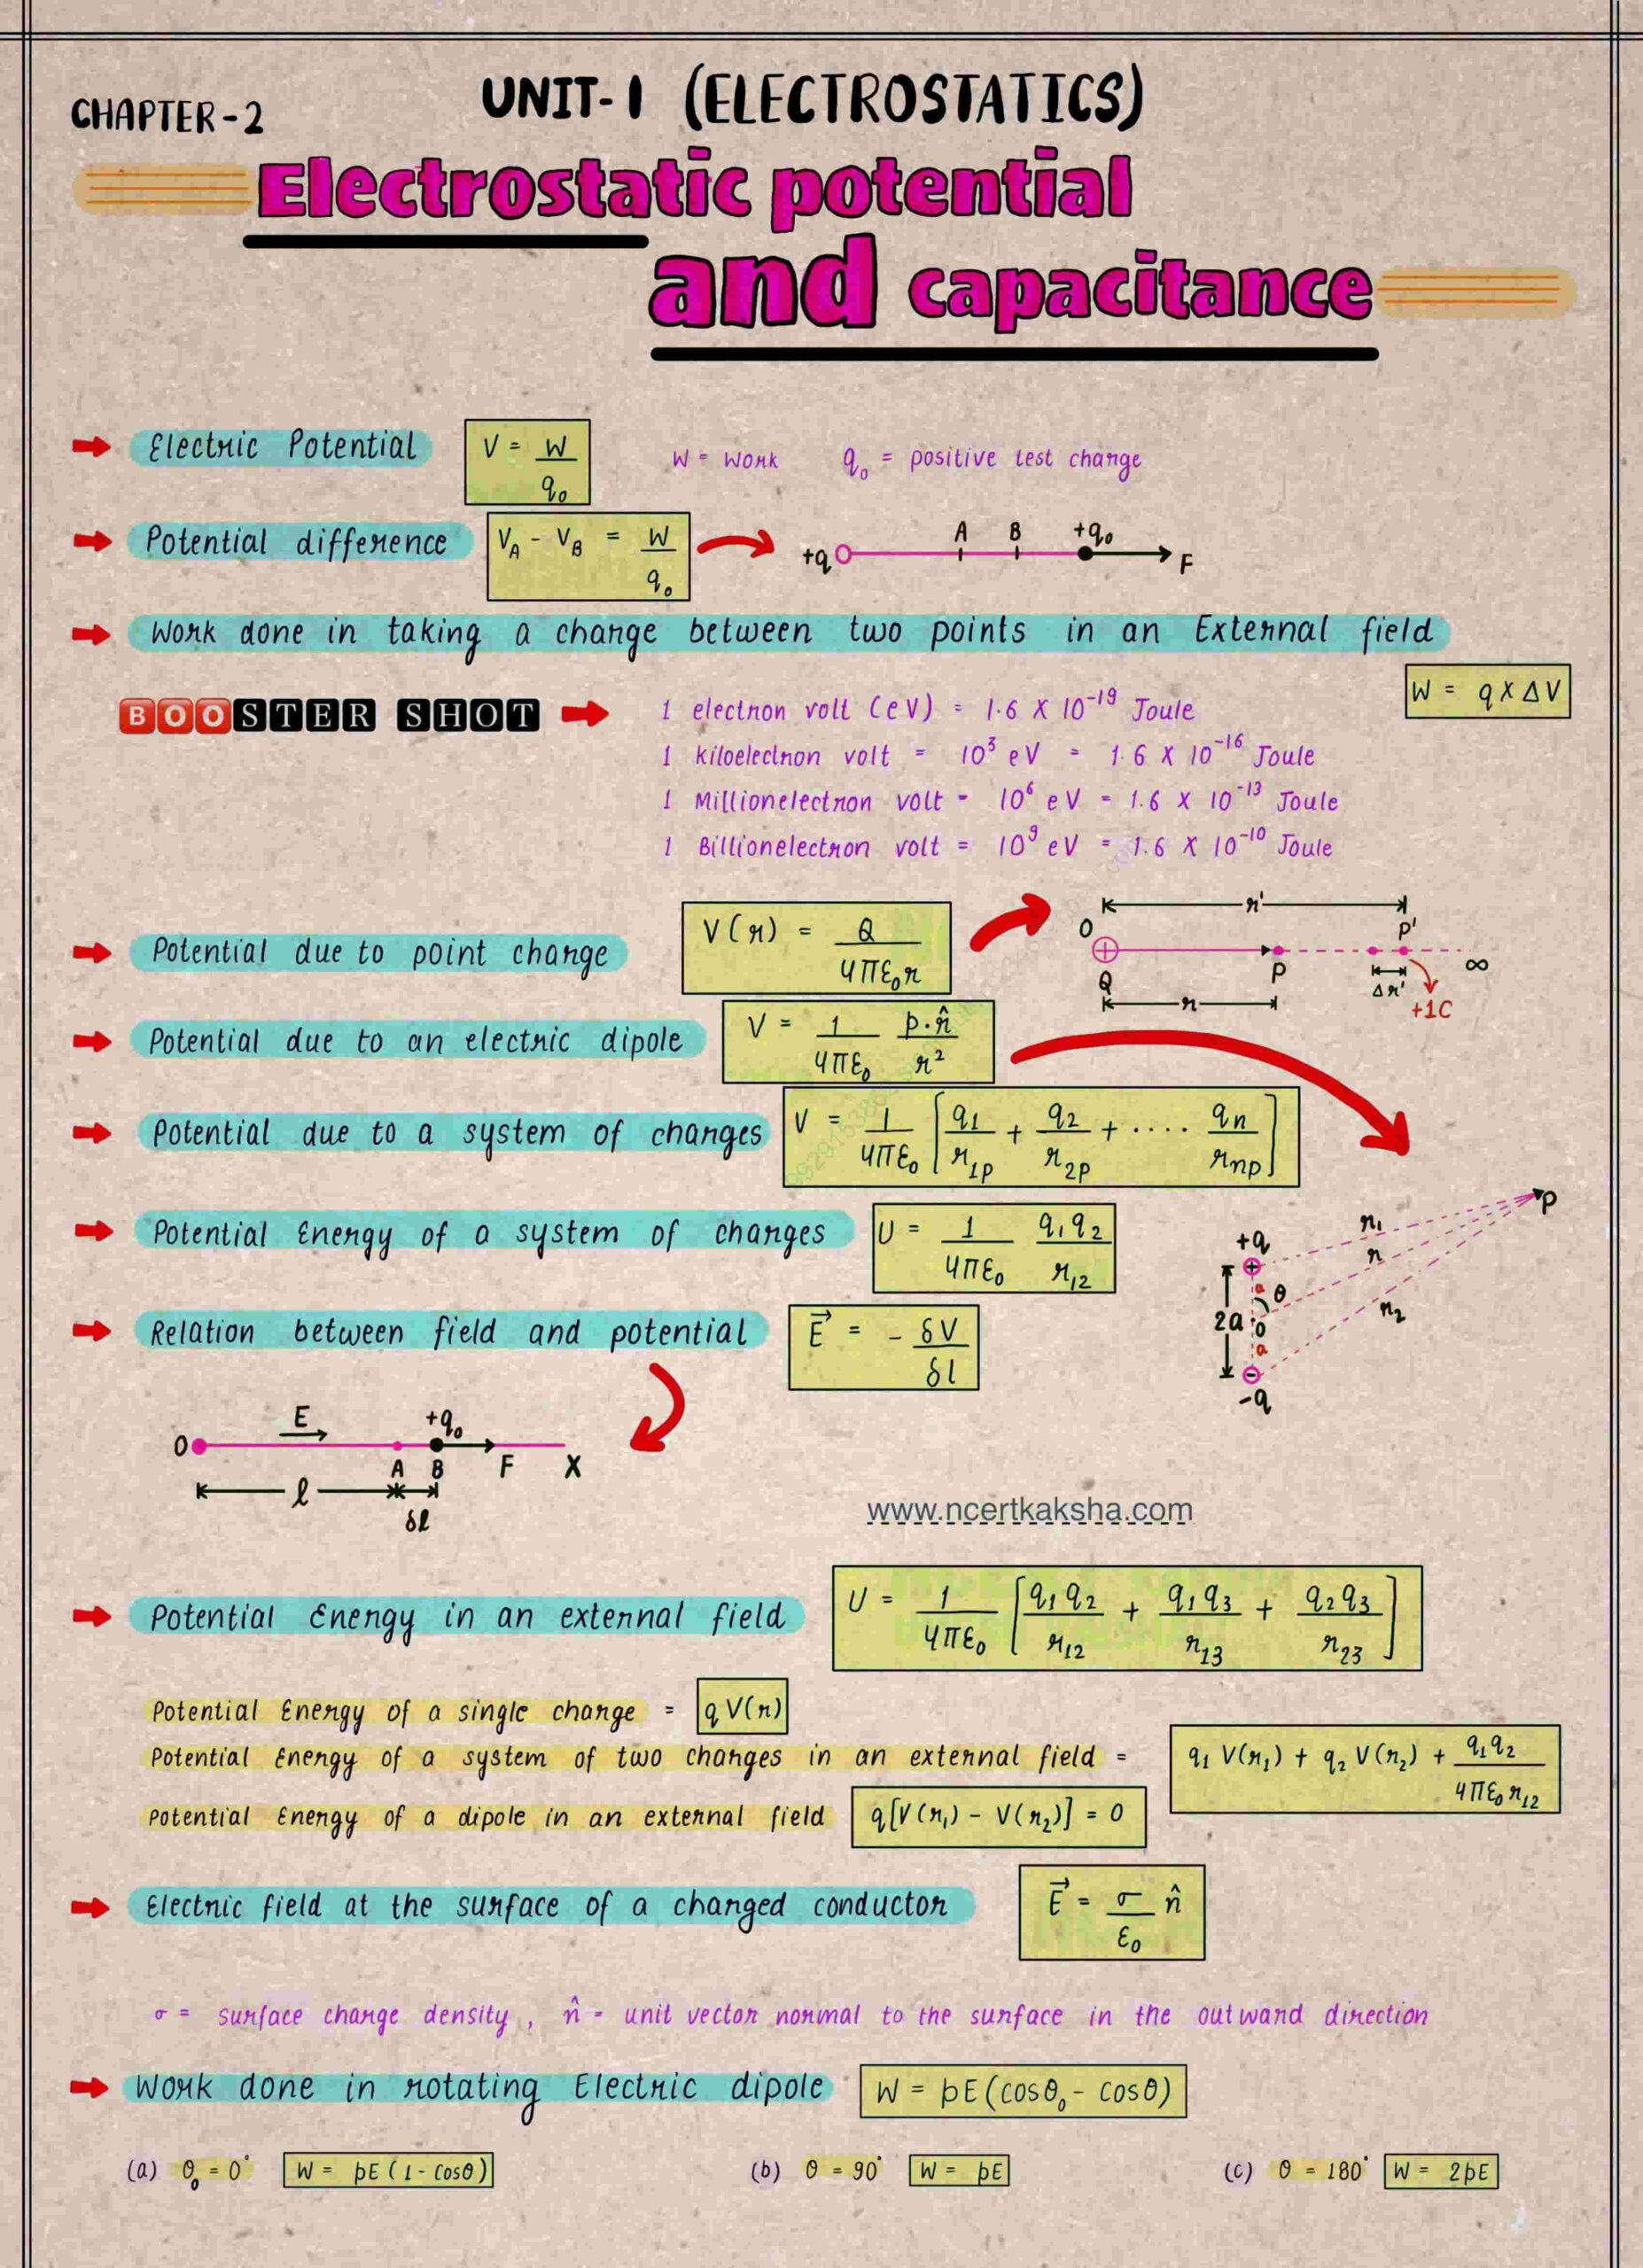 CHAPTER-2
UNIT-1 (ELECTROSTATICS)
Electrostatic potential
and capacitance
Electric Potential V = W/q₀ W = Work q₀ = positive test charge
Potential difference V_A - V_B = W/q₀ +q A B +q₀ F
Work done in taking a charge between two points in an External field
W = q X ΔV
BOOSTER SHOT 1 electron volt (eV) = 1.6 X 10⁻¹⁹ Joule
1 kiloelectron volt = 10³ eV = 1.6 X 10⁻¹⁶ Joule
1 Millionelectron volt - 10⁶ eV = 1.6 X 10⁻¹³ Joule
1 Billionelectron volt = 10⁹ eV = 1.6 X 10⁻¹⁰ Joule
Potential due to point charge V(r) = Q/4πε₀r
r' O P' Q P ∞ Δr' r +1C
Potential due to an electric dipole V = 1/4πε₀ p·r̂/r²
Potential due to a system of charges V = 1/4πε₀ [q₁/r₁p + q₂/r₂p + .... qn/rnp]
Potential Energy of a system of charges U = 1/4πε₀ q₁q₂/r₁₂
P r₁ r r₂ +q a θ 2a o a -q
Relation between field and potential E⃗ = - δV/δl
O E +q₀ A B F X
l δl
www.ncertkaksha.com
Potential Energy in an external field U = 1/4πε₀ [q₁q₂/r₁₂ + q₁q₃/r₁₃ + q₂q₃/r₂₃]
Potential Energy of a single charge = qV(r)
Potential Energy of a system of two charges in an external field = q₁ V(r₁) + q₂ V(r₂) + q₁q₂/4πε₀r₁₂
Potential Energy of a dipole in an external field q[V(r₁) - V(r₂)] = 0
Electric field at the surface of a charged conductor E⃗ = σ/ε₀ n̂
σ = surface charge density, n̂ - unit vector normal to the surface in the outward direction
Work done in rotating Electric dipole W = pE(cosθ₀ - cosθ)
(a) θ₀ = 0° W = pE (1 - cosθ) (b) θ = 90° W = pE (c) θ = 180° W = 2pE